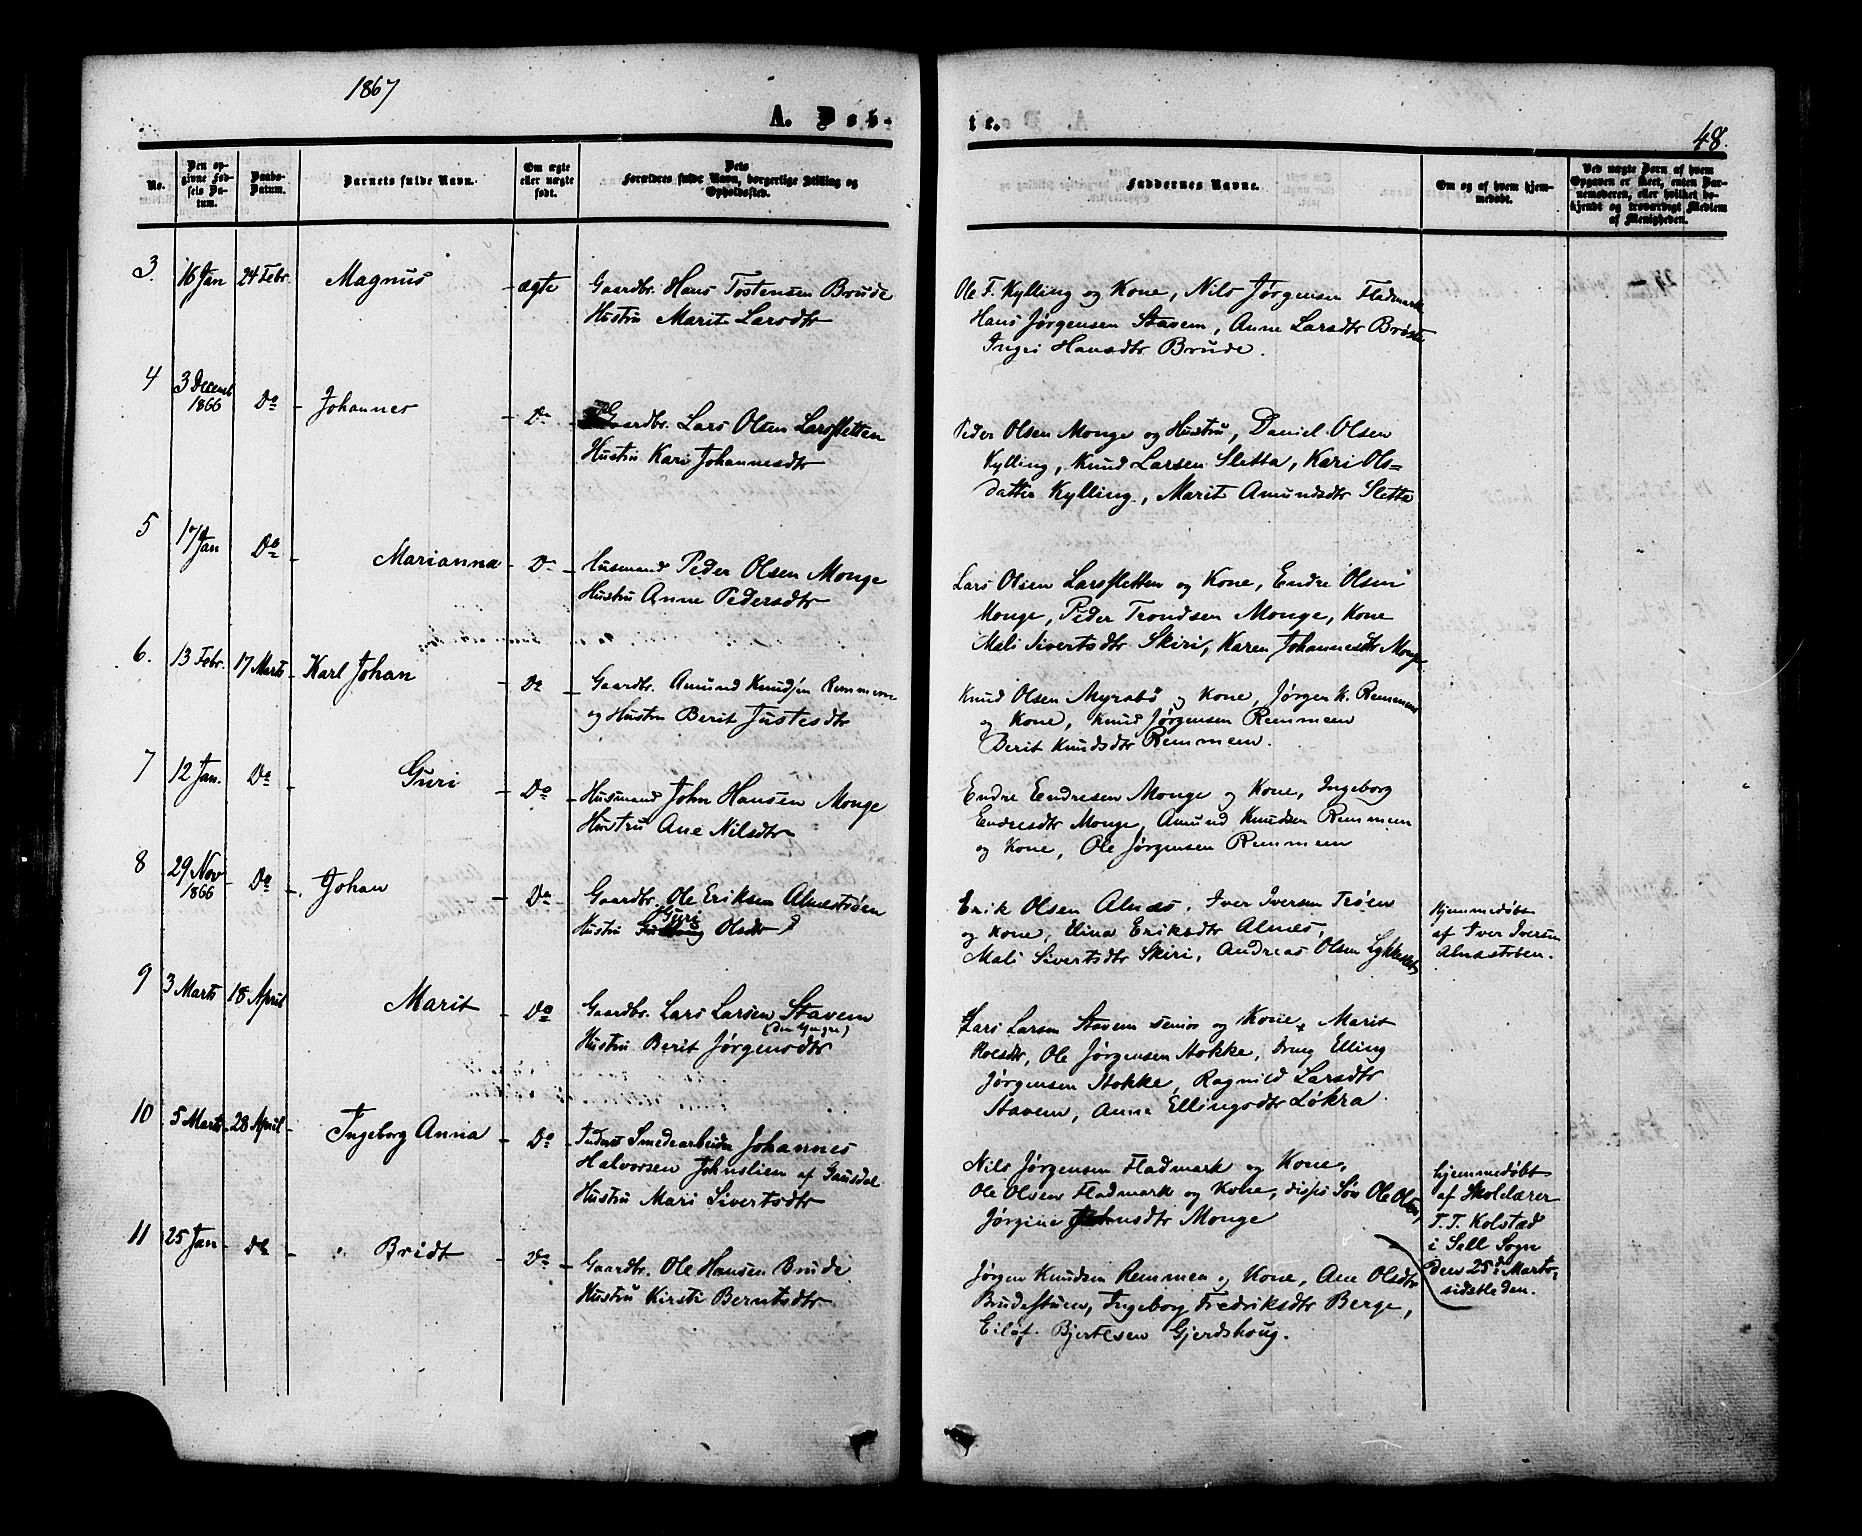 1867
A. Döb-
No.
Den op-
givne Fød-
sels Da-
tum.
Daabs-
Datum.
Barnets fulde Navn.
Om ægte
eller uægte
født.
Dets
Forældres fulde Navn, borgerlige Stilling og
Opholdssted.
3. 16 Jan 24 Febr. Magnus ægte Gaardbr. Hans Tostensen Brude
Hustru Marit Larsdtr
4 3 Decemb 1866 Do Johannes Do Gaardbr. Lars Olsen Larssletten
Hustru Kari Johannesdtr
5 17 Jan Do Marianna Do Husmand Peder Olsen Monge
Hustru Anne Pedersdtr
6. 13 Febr. 17 Marts Karl Johan Do Gaardbr. Amund Knudsen Remmem
og Hustru Berit Justesdtr
7 12 Jan. Do Guri Do Husmand John Hansen Monge
Hustru Ane Nilsdtr
8 29 Nov 1866 Do Johan Do Gaardbr. Ole Eriksen Alnestrøen
Hustru Guri Olsdtr
9 3 Marts 18 April Marit Do Gaardbr. Lars Larsen Stavem
(den Yngre)
Hustru Berit Jørgensdtr
10 5 Marts 28 April Ingeborg Anna Do Smedearbeider Johannes
Halvorsen Johnslien af Gausdal
Hustru Mari Sivertsdtr
11 25 Jan Do Bridt Do Gaardbr. Ole Hansen Brude
Hustru Kirsti Berntsdtr
te.
48.
Faddernes Navne.
Om og af hvem hjem-
medøbt.
Ved uægte Børn af hvem
Opgaven er skeet, enten Bar-
nemoderen, eller hvilket be-
kjendt og troværdigt Medlem
af Menigheden.
Ole F. Kylling og Kone, Nils Jørgensen Fladmark
Hans Jørgensen Stavem, Anne Larsdtr Brøste
Hansdtr Brude.
Peder Olsen Monge og Hustru, Daniel Olsen
Kylling, Knud Larsen Sletta, Kari Ols-
datter Kylling, Marit Amundsdtr Sletta
Lars Olsen Larssletten og Kone, Endre Olsen
Monge, Peder Trondsen Monge, Kone
Mali Sivertsdtr Skiri, Karen Johannesdtr Monge
Knud Olsen Myrabø og Kone, Jørgen K. Remmem
og Kone, Knud Jørgensen Remmem
Berit Knudsdtr Remmem.
Endre Endresen Monge og Kone, Ingeborg
Endresdtr Monge, Amund Knudsen Remmem
og Kone, Ole Jørgensen Remmem
Erik Olsen Alnæs, Iver Iversen Trøen
og Kone, Elina Eriksdtr Alnes,
Mali Sivertsdtr Skiri, Andreas Olsen
Hjemmedøbt
af Iver Iversen
Alnestrøen.
Lars Larsen Stavem senior og Kone, Marit
Ole Jørgensen Stokke, Elling
Jørgensen Stokke, Ragnild Larsdtr
Stavem, Anne Ellingsdtr Løkra
Nils Jørgensen Fladmark og Kone,
Ole Olsen Fladmark og Kone, disses Søn Ole Olsen,
Jørgine Monge
hjemmedøbt
af Skolelærer
T. T. Kolstad
i Sell Sogn
den 25d Marts
sidstleden.
Jørgen Knudsen Remmem og Kone, Ane Olsdtr
Brudestuen, Ingeborg Fredriksdtr Berge,
Eilef Bjertesen Gjerdshoug.